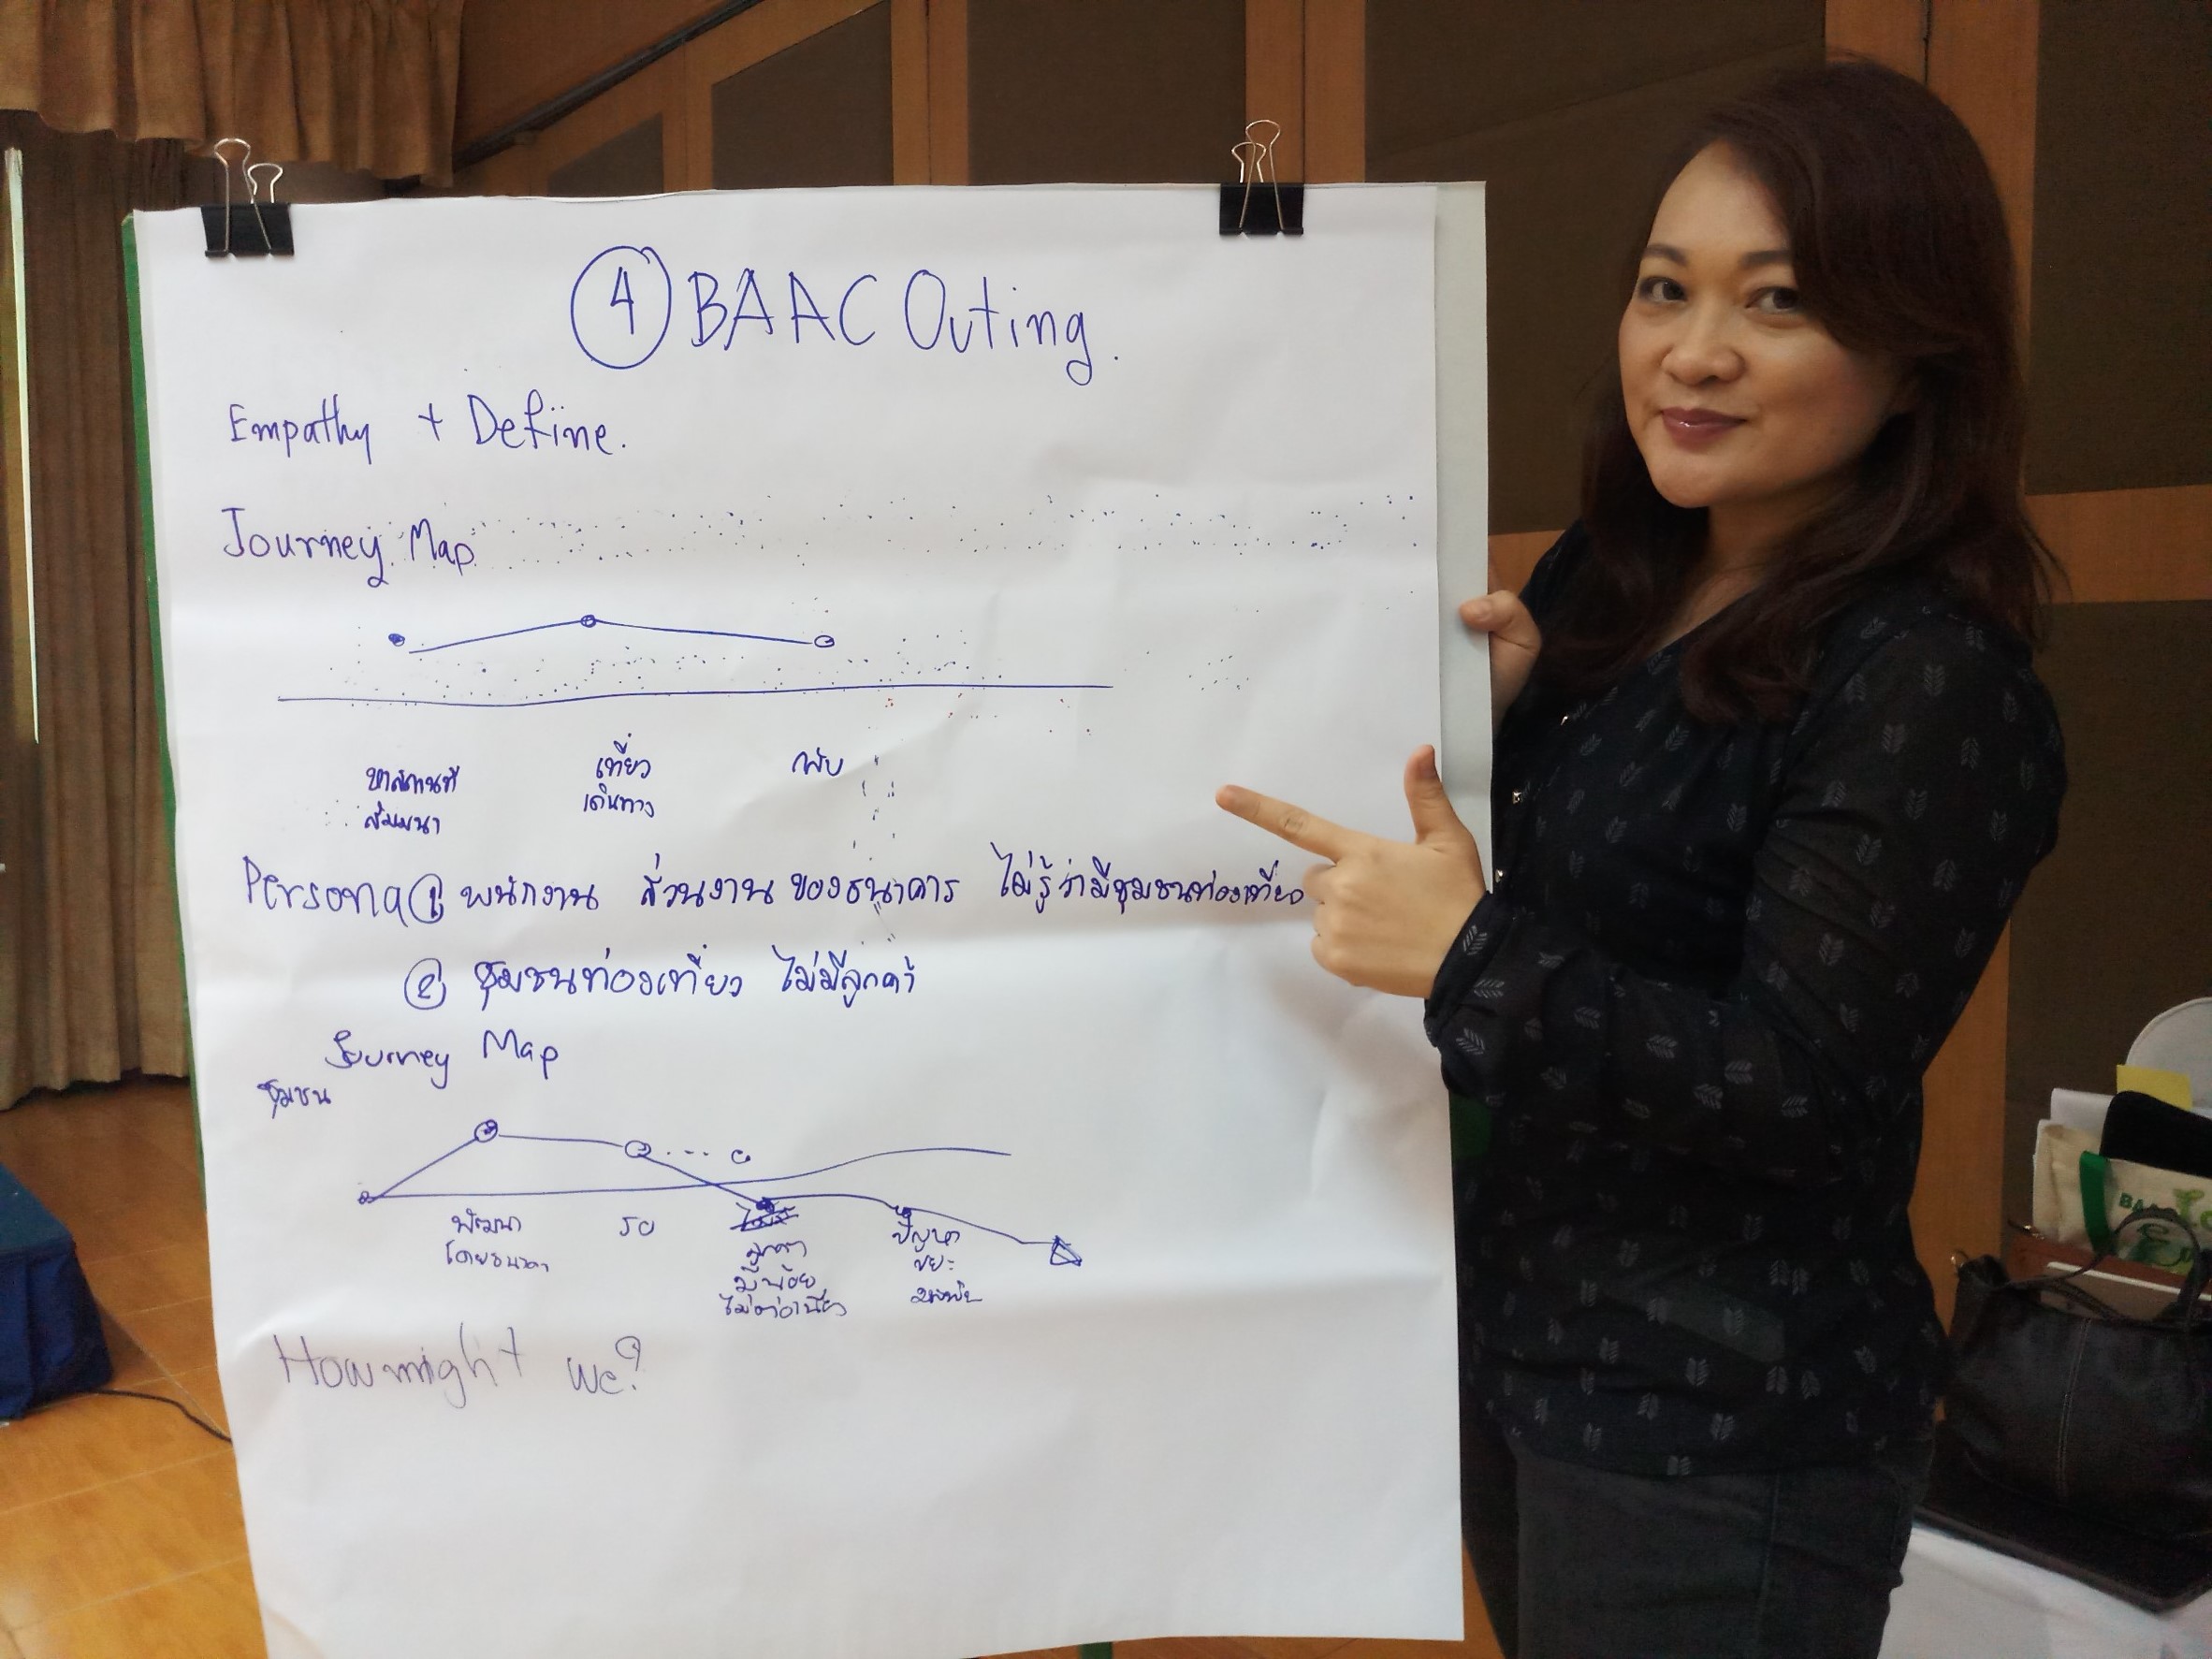 4 BAAC Outing.
Empathy + Define.
Journey Map
หาสถานที่ เที่ยว กลับ
สัมมนา เดินทาง
Persona ① พนักงาน ส่วนงาน ของธนาคาร ไม่รู้ว่ามีชุมชนท่องเที่ยว
② ชุมชนท่องเที่ยว ไม่มีลูกค้า
Journey Map
ชุมชน
พัฒนา ปัญหา
โดยธนาคา ขยะ
มีน้อย
ไม่ต่อเนื่อง
How might we?